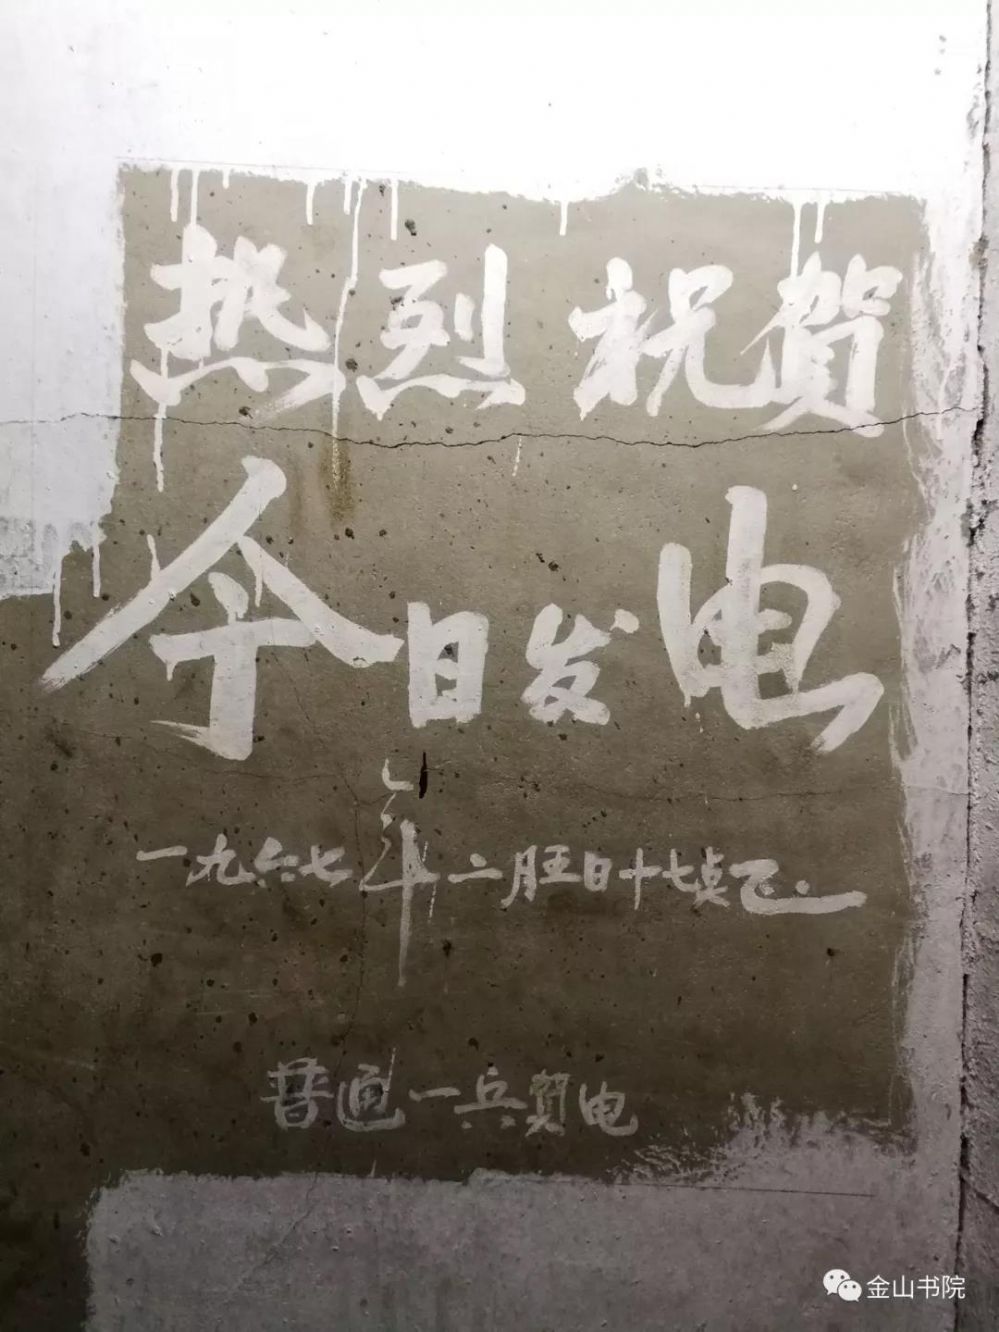 热烈祝賀
今日发电
一九六七年二月五日十七点正
普通一兵賀电
金山书院